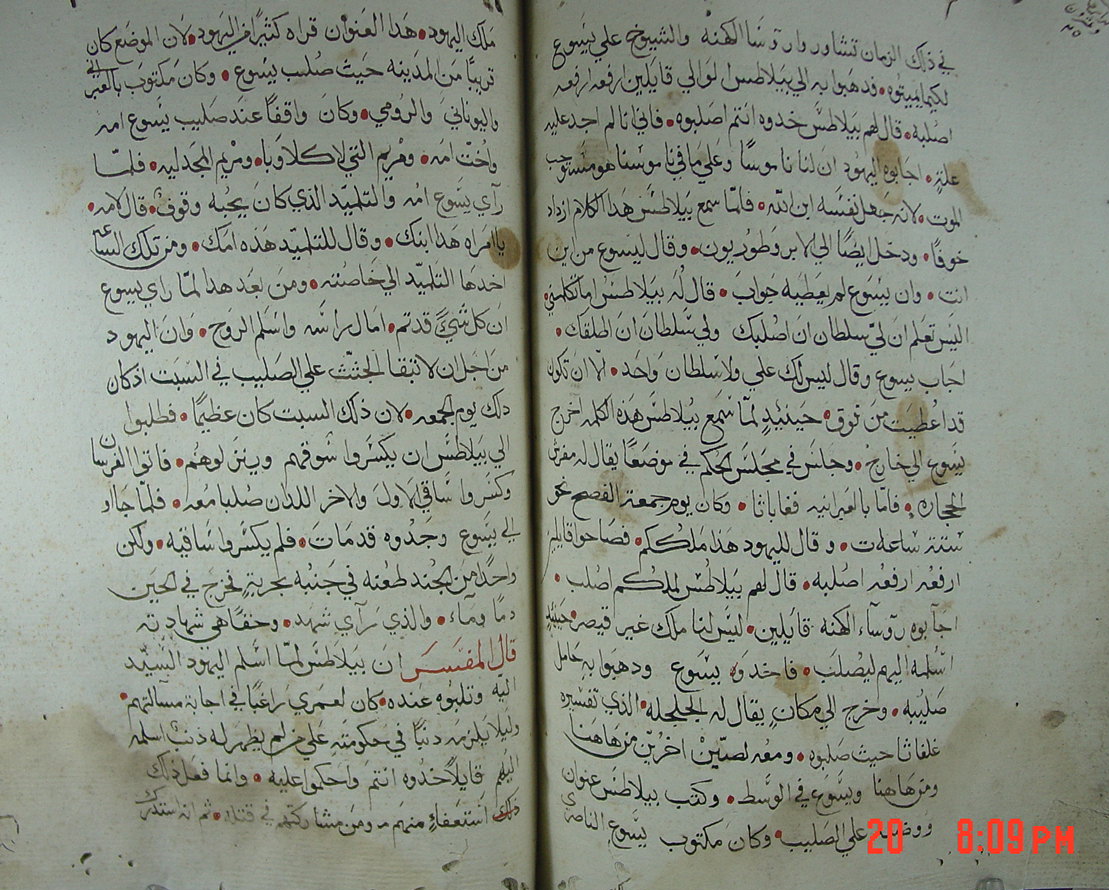 في ذلك الزمان تشاوروا روسا الكهنه والشيوخ علي يسوع
لكيما يميتوه • فدهبوا به الي بيلاطس الوالي قايلين ارفعه ارفعه
اصلبه • قال لهم بيلاطس خدوه انتم اصلبوه • فاني انا لم اجد عليه
علة • اجابوه اليهود ان لنا ناموسًا وعلي ما في ناموسنا هو مستوجب
الموت • لانه جعل نفسه ابن الله • فلمّا سمع بيلاطس هدا الكلام ازداد
خوفًا • ودخل ايضًا الي الابروطوريون • وقال ليسوع من اين
انت • وان يسوع لم يعطيه جواب • قال له بيلاطس اما تكلمني
اليس تعلم ان لي سلطان ان اصلبك ولي سلطان ان اطلقك •
اجاب يسوع وقال ليس لك علي ولا سلطان واحد • الا ان تكون
قد اعطيت من فوق • حينيدٍ لمّا سمع بيلاطس هده الكلمه اخرج
يسوع الي خارج • وجلس في مجلس الحكم في موضعًا يقال له مفرش
الحجاره • فامّا بالعبرانيه فغاباثا • وكان يوم جمعة الفصح نحو
ستة ساعات • وقال لليهود هدا ملككم • فصاحوا قايلين
ارفعُه ارفعُه اصلبه • قال لهم بيلاطس لملككم اصلب •
اجابوه روسآء الكهنه قايلين • ليس لنا ملك غير قيصر • حينيدٍ
اسلمه اليهم ليصلب • فاخدوه يسوع ودهبوا به حامل
صليبه • وخرج الي مكانٍ يقال له الجلجله • الذي تفسيره
غلغاثا حيث صلبوه • ومعُه لصّين اخرين من هاهنا
ومن هاهنا ويسوع في الوسط • وكتب بيلاطس عنوان
ووضعه علي الصليب • وكان مكتوب يسوع الناصري
ملك اليهود • هدا العنوان قراه كثيرًا من اليهود • لان الموضع كان
قريبًا من المدينه حيث صُلب يسوع • وكان مكتوب بالعبراني
واليوناني والرومي • وكان واقفًا عند صليب يسوع امه
واخت امه • ومريم التي لاكلاوبا • ومريم المجدليه • فلمّا
رآي يسوع امُه والتلميد الذي كان يحبُه وقوف • قال لامه •
ياامراه هدا ابنك • وقال للتلميد هده امك • ومن تلك الساعه
اخدها التلميد الي خاصته • ومن بعد هدا لمّا راي يسوع
ان كل شيءٍ قد تم • امال راسه واسلم الروح • وان اليهود
من اجل ان لا تبقا الجثث علي الصليب في السبت اد كان
دلك يوم الجمعه • لان دلك السبت كان عظيمًا • فطلبوا
الي بيلاطس ان يكسروا سوقهم وينزلوهم • فاتوا الفرسان
وكسروا ساقي الاول والاخر اللدان صلبا معه • فلمّا جاو
الي يسوع وجدوه قد مات • فلم يكسروا ساقيه • ولكن
واحدًا من الجند طعنه في جنبه بحربةٍ فخرج في الحين
دمًا ومآء • والذي رآي شهد • وحقًا هي شهادته
قال المفسر ان بيلاطس لمّا اسلم اليهود السيّد
اليه وتلبوه عنده • كان لعمري راغبًا في اجابة مسالتهم •
وليلا يلزمه دنبًا في حكومته علي من لم يظهر له دنب • اسلمه
اليهم قايلاً خدوه انتم واحكموا عليه • وانما فعل ذلك
دلك استعفاء منهم ومن مشاركتهم في قتله • ثم انه استدرك
20 8:09 PM